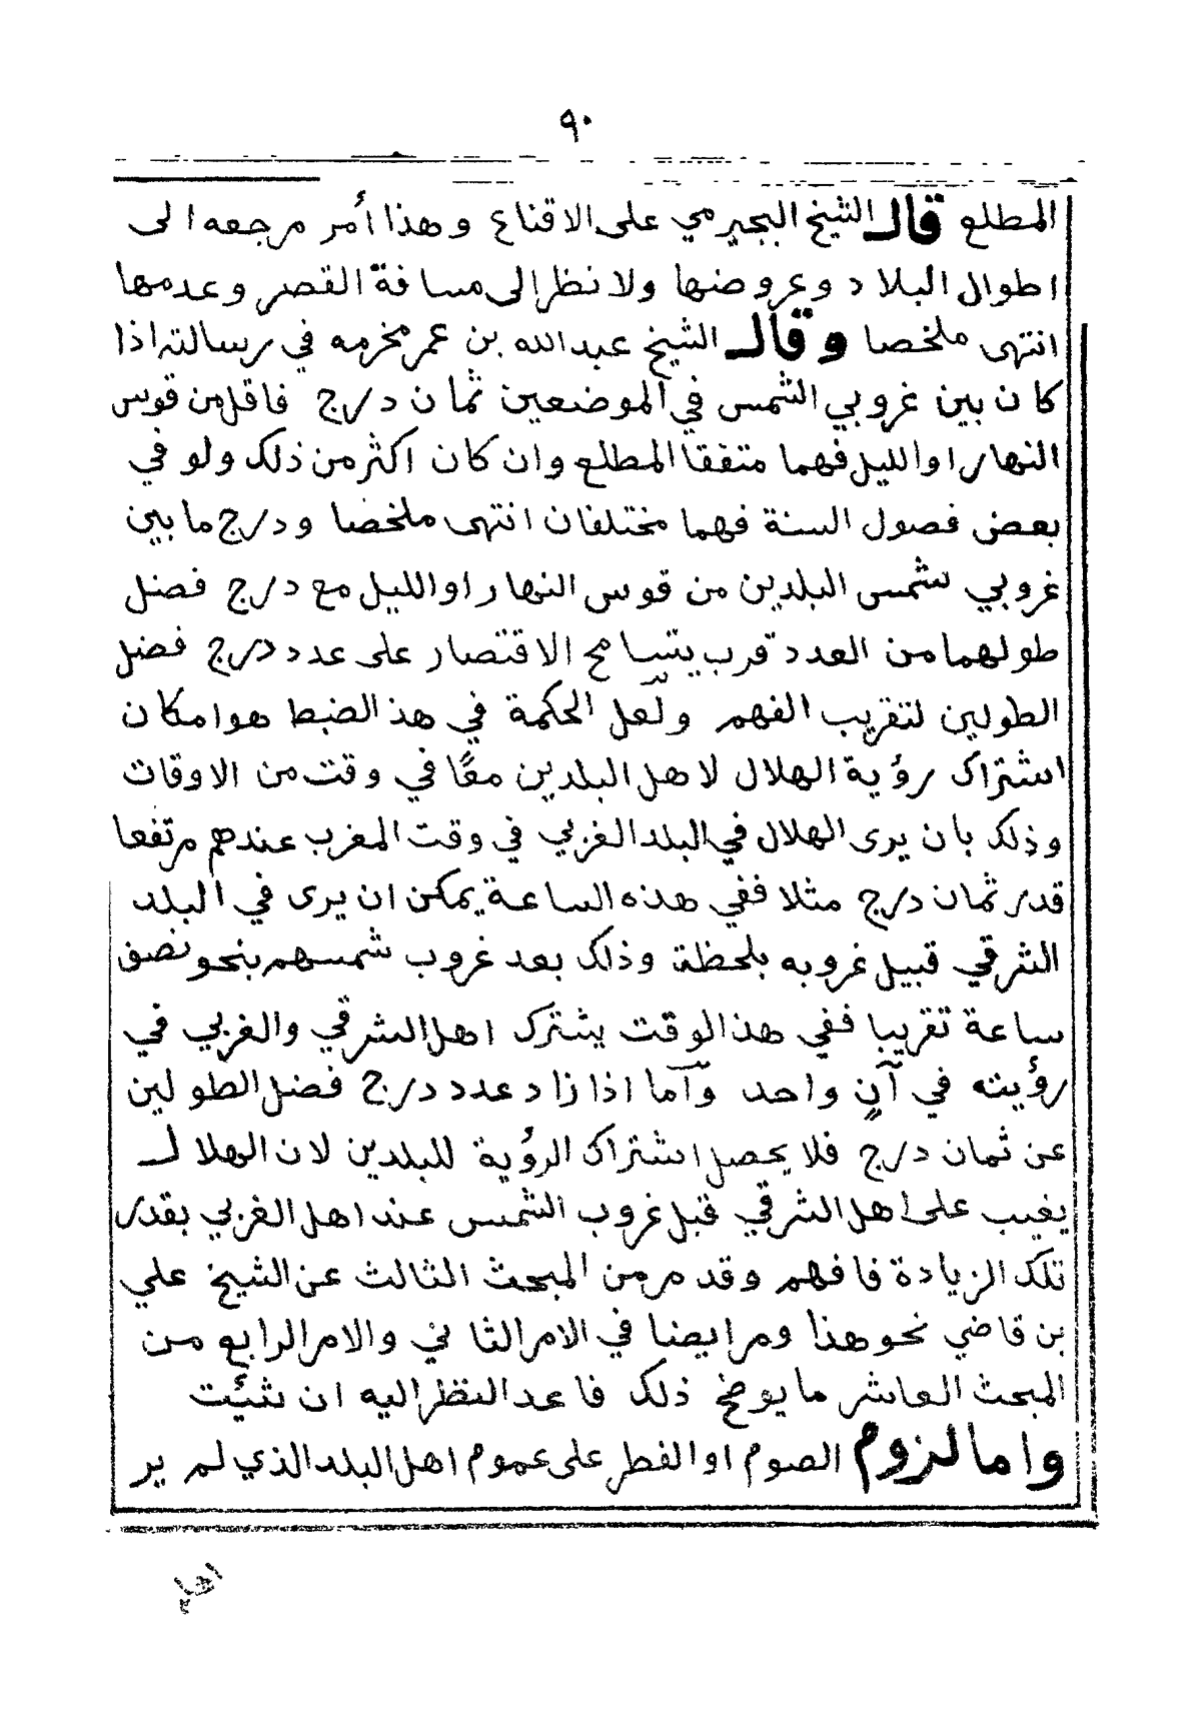 ٩٠
المطلع قال الشيخ البجيرمي على الاقناع وهذا أمر مرجعه الى
اطوال البلاد وعروضها ولا نظر الى مسافة القصر وعدمها
انتهى ملخصا وقال الشيخ عبد الله بن عمر مخرمه في رسالته اذا
كان بين غروبي الشمس في الموضعين ثمان درج فاقل من قوس
النهار او الليل فهما متفقا المطلع وان كان اكثر من ذلك ولو في
بعض فصول السنة فهما مختلفان انتهى ملخصا ودرج ما بين
غروبي شمس البلدين من قوس النهار او الليل مع درج فضل
طولهما من العدد قرب يتسامح الاقتصار على عدد درج فضل
الطولين لتقريب الفهم ولعل الحكمة في هذ الضبط هو امكان
اشتراك رؤية الهلال لاهل البلدين معًا في وقت من الاوقات
وذلك بان يرى الهلال في البلد الغربي في وقت المغرب عندهم مرتفعا
قدر ثمان درج مثلا ففي هذه الساعة يمكن ان يرى في البلد
الشرقي قبيل غروبه بلحظة وذلك بعد غروب شمسهم بنحو نصف
ساعة تقريبا ففي هذ الوقت يشترك اهل الشرقي والغربي في
رؤيته في آنٍ واحد وآما اذا زاد عدد درج فضل الطولين
عن ثمان درج فلا يحصل اشتراك الرؤية للبلدين لان الهلال
يغيب على اهل الشرقي قبل غروب الشمس عند اهل الغربي بقدر
تلك الزيادة فافهم وقد مر من المبحث الثالث عن الشيخ علي
بن قاضي نحو هذا ومر ايضا في الامر الثاني والامر الرابع من
المبحث العاشر ما يوضح ذلك فاعد النظر اليه ان شئت
واما لزوم الصوم او الفطر على عموم اهل البلد الذي لم ير
اهله